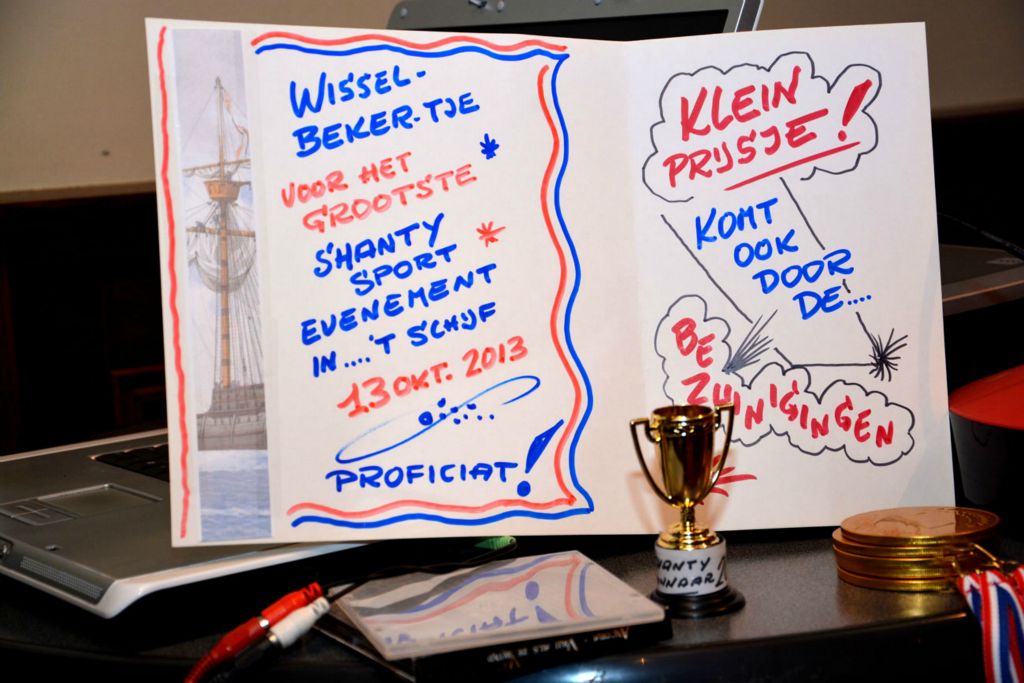 WISSEL-
BEKER-TJE
VOOR HET
GROOTSTE
SHANTY
SPORT
EVENEMENT
IN....'T SCHIJF
13 OKT. 2013
PROFICIAT!
KLEIN
PRIJSJE!
KOMT
OOK
DOOR
DE....
BE
ZUINIGINGEN